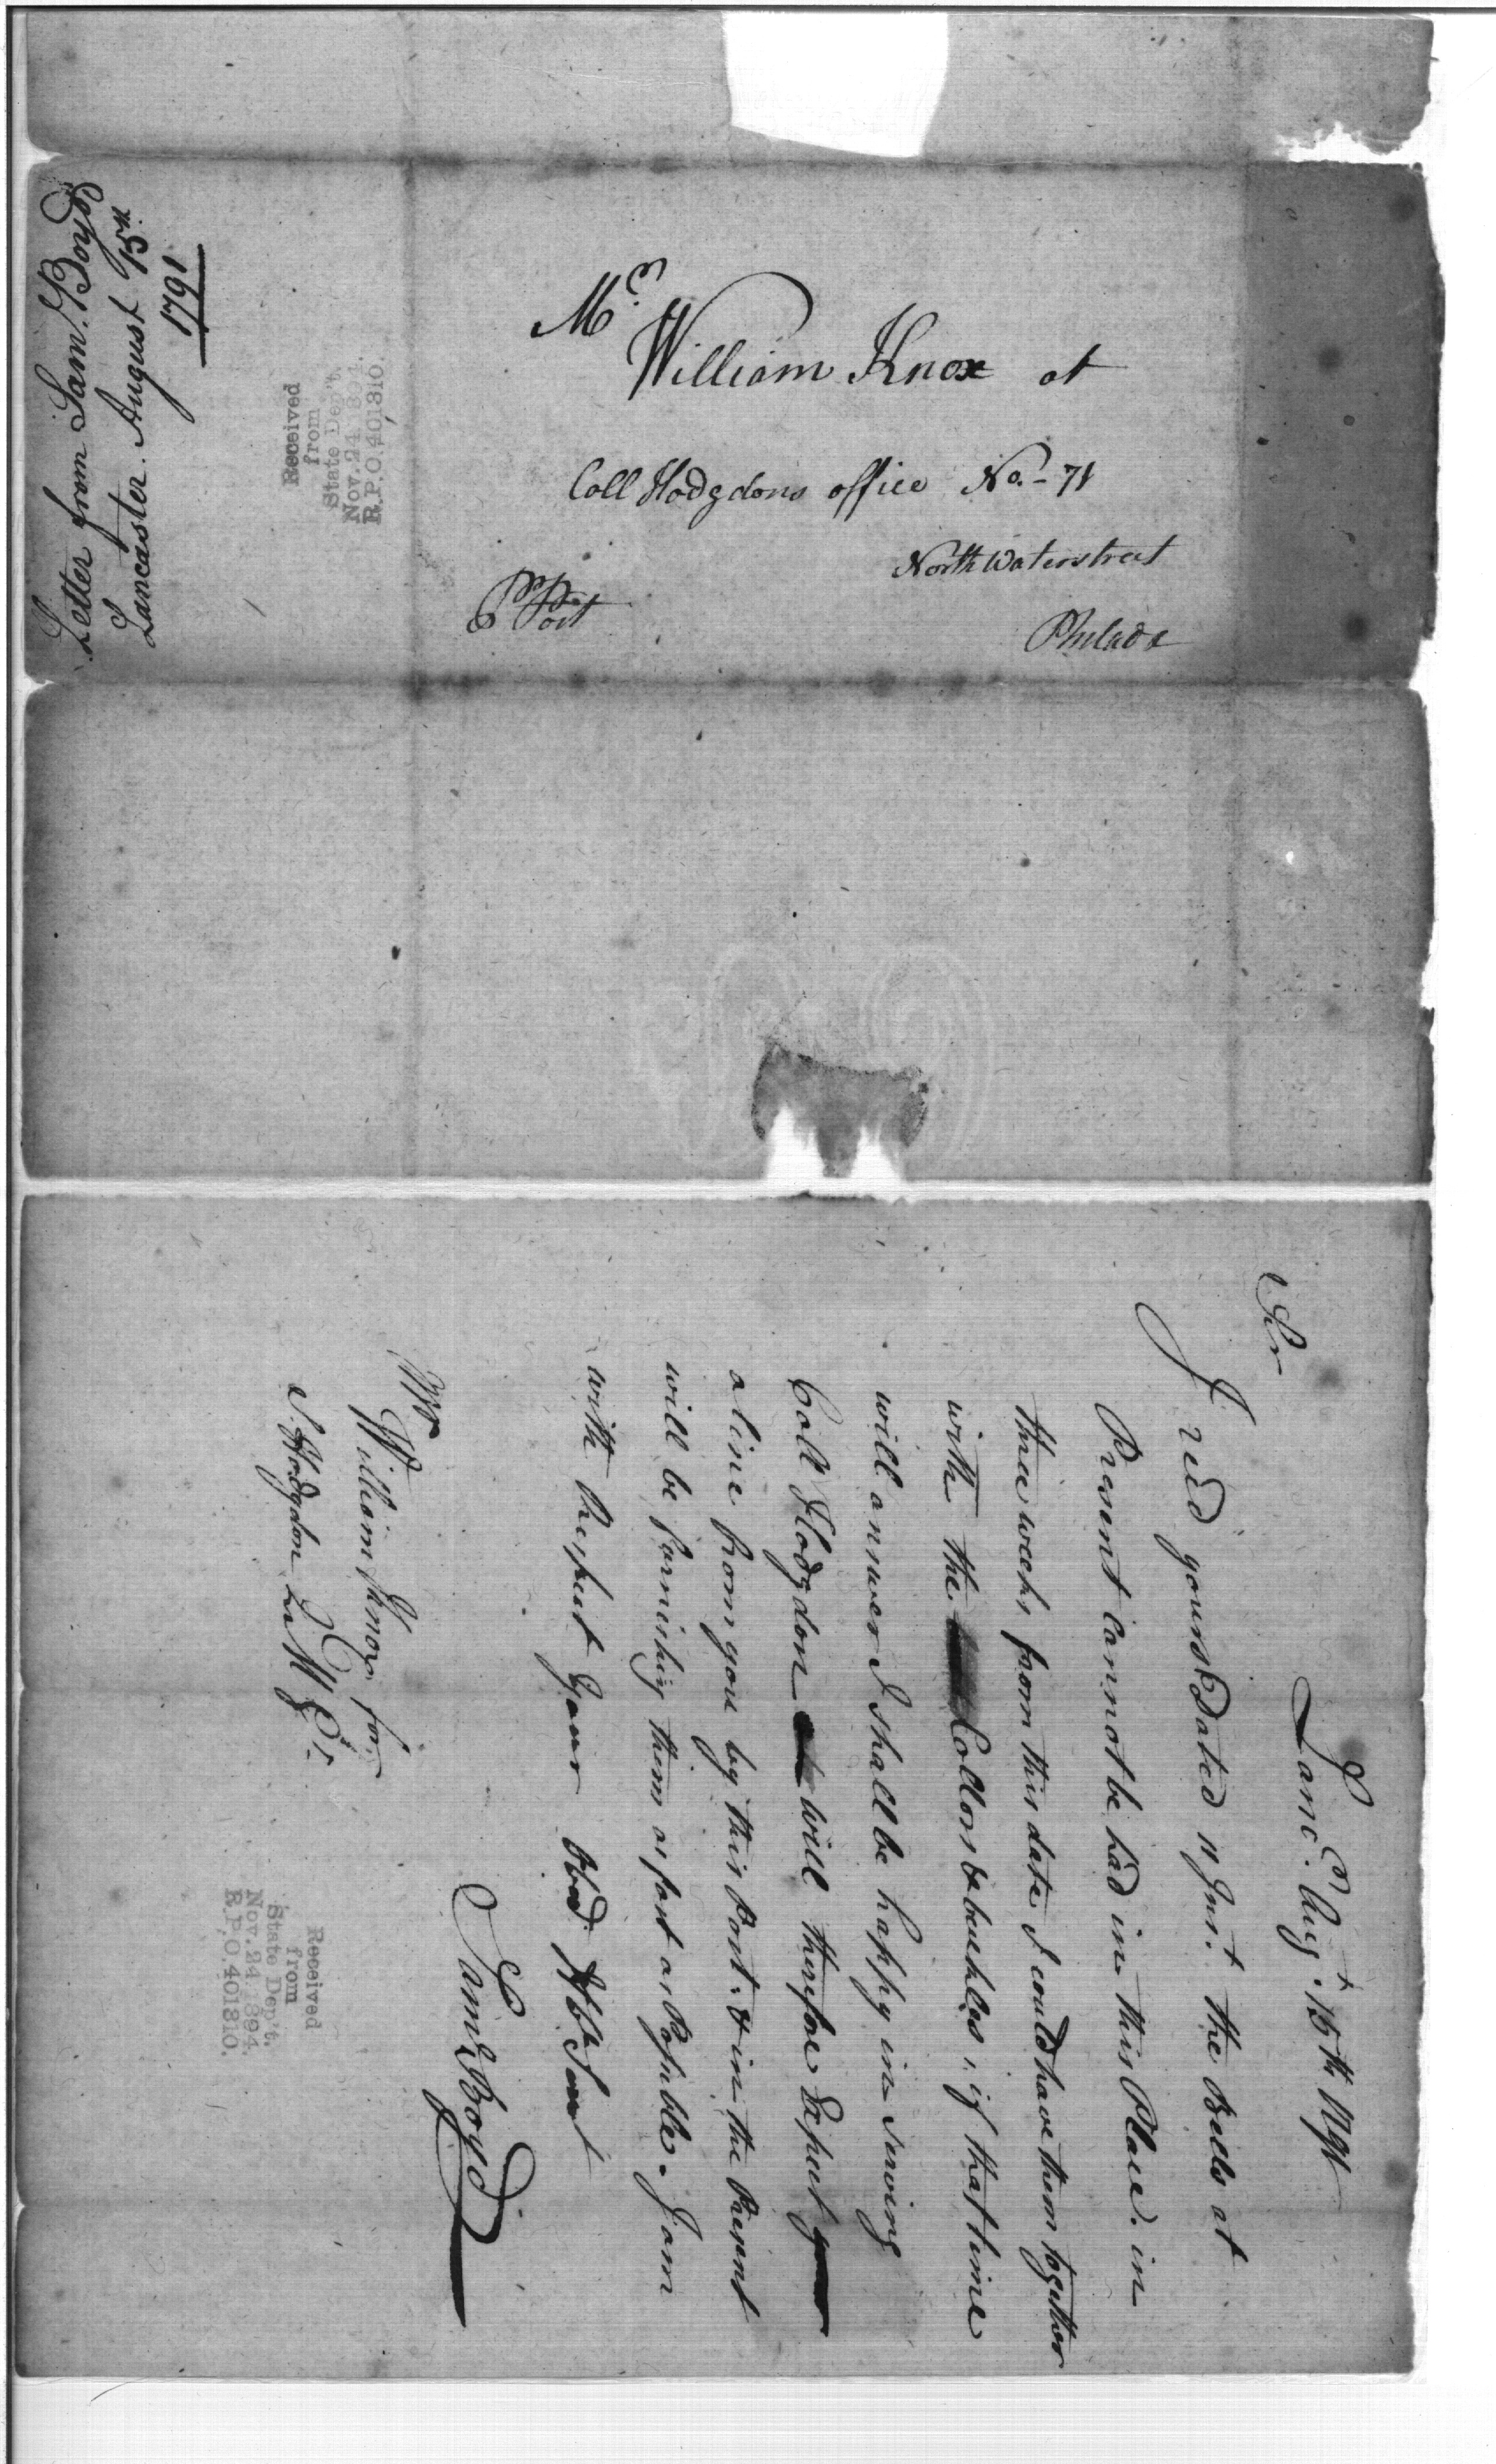 Letter from Sam. Boyd
Lancaster. August 15th.
1791
Received
from
State Dep't.
Nov. 24 1894.
R.P.O. 401310.
Mr.
William Knox at
Coll Hodgdons office No. - 71
North Waterstreet
Philada
Pr Post
Lancr. Augt. 15th 1791
Sir
I recd yours Dated 11 Inst. the Bells at
Present Cannot be had in this Place. in
three weeks from this date I could have them together
with the Collors & buckles, if that time
will answer I shall be happy in serving
Coll Hodgdon will therefore Expect
a line from you by this Post. & in the Present
will be furnishing them as fast as Possible. I am
with Respect your Obed Hbe Servt
Saml Boyd
Mr
William Knox for
S Hodgdon Q M G.
Received
from
State Dep't.
Nov. 24 1894.
R.P.O. 401310.